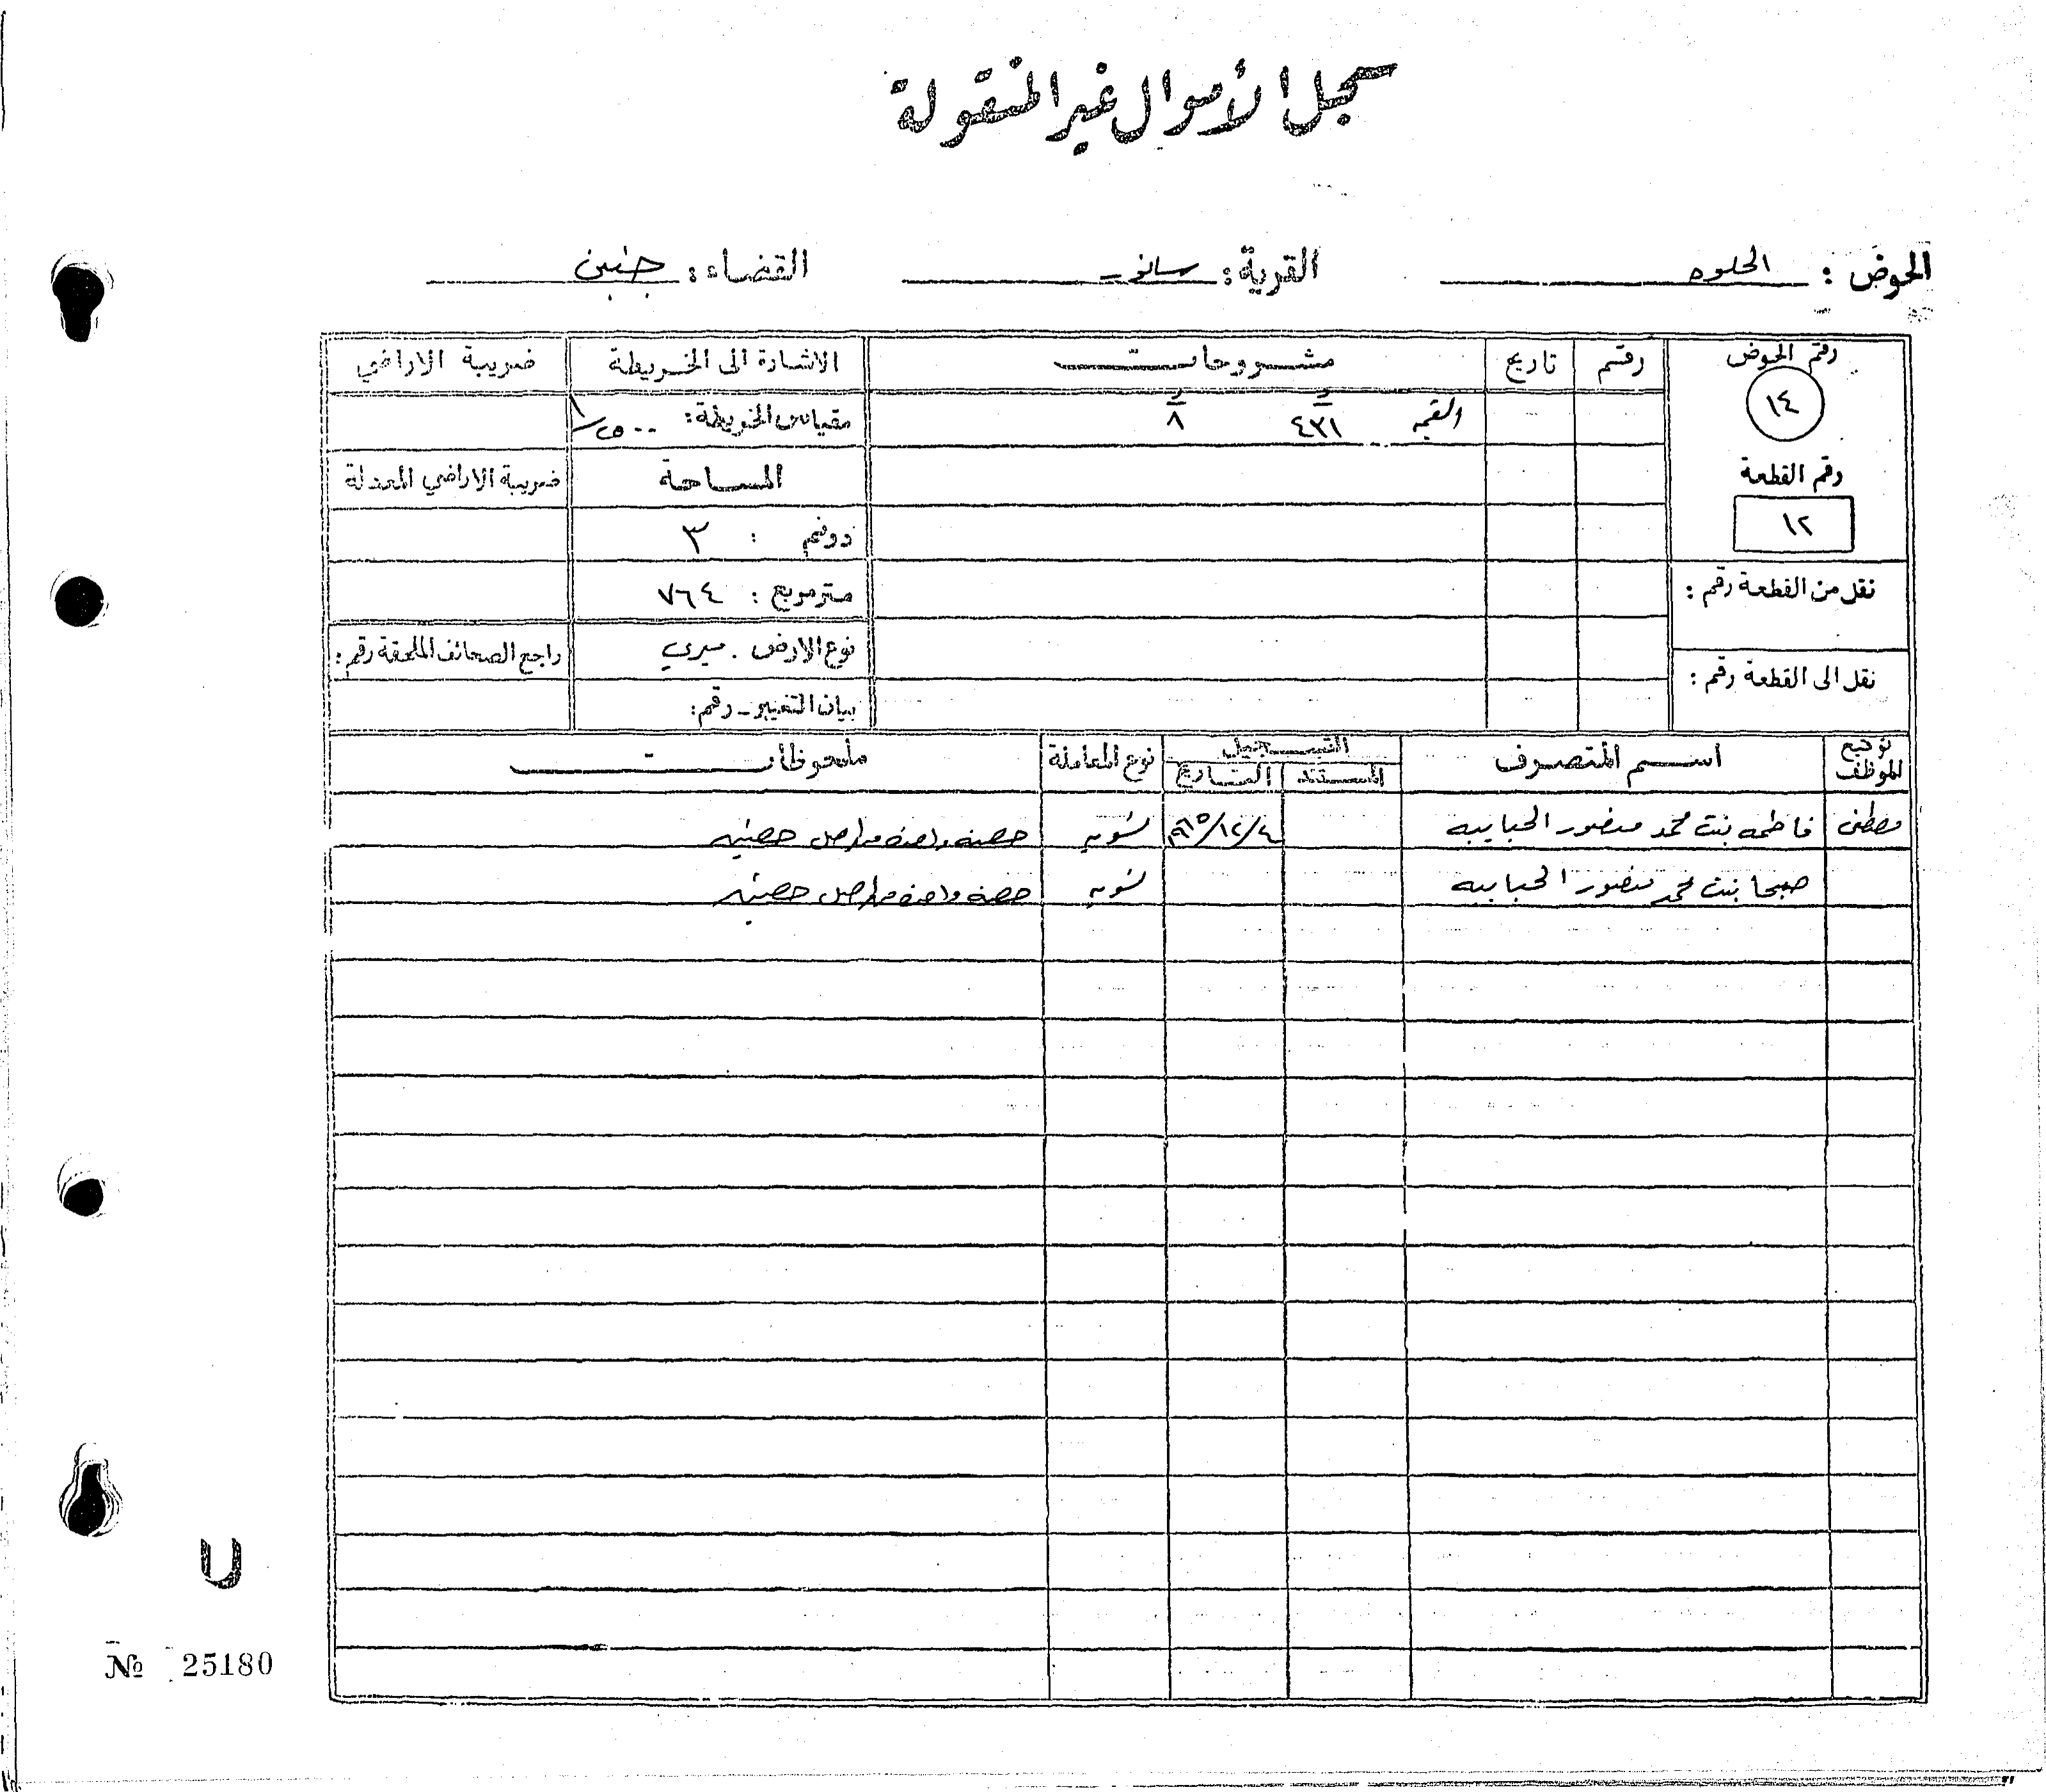 سجل الأموال غير المنقولة
الحوض : الحلوه القرية : سانور القضاء : جنين
رقم الحوض رقم تاريخ مشروحات الاشارة الى الخريطة ضريبة الاراضي
١٤ القيمه ٤٣١ ٨ مقياس الخريطة: ١/٢٥٠٠
رقم القطعة المساحة ضريبة الاراضي المعدلة
١٢ دونم : ٣
نقل من القطعة رقم : متر مربع : ٧٦٤
نوع الارض . ميري راجع الصحائف الملحقة رقم :
نقل الى القطعة رقم : بيان التغيير - رقم :
توقيع الموظف اسم المتصرف التسجيل نوع المعاملة ملحوظات
المستند التاريخ
مصطفى فاطمه بنت محمد منصور الحبايبه ٩٦٥/١٢/٤ تسويه حصه واحده من اصل حصتين
صبحا بنت محمد منصور الحبايبه تسويه حصه واحده من اصل حصتين
№ 25180